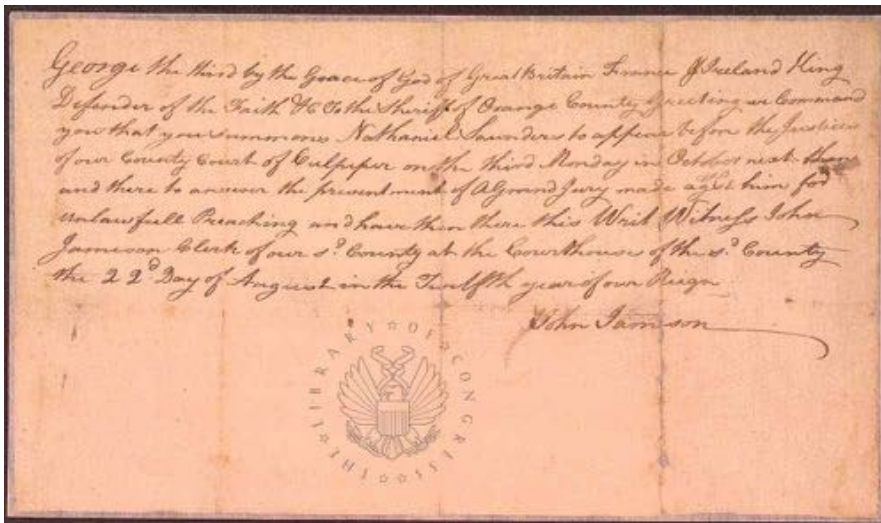 George the third by the Grace of God of Great Britain France & Ireland King
Defender of the Faith &C To the Sheriff of Orange County Greeting we Command
you that you summons Nathaniel Saunders to appear before the Justices
of our County Court of Culpeper on the third Monday in October next then
and there to answer the presentment of A Grand Jury made agst him for
unlawfull Preaching and have then there this Writ Witness John
Jameson Clerk of our sd. County at the Courthouse of the sd. County
the 22d. Day of August in the Twelfth year of our Reign
John Jameson
THE LIBRARY OF CONGRESS